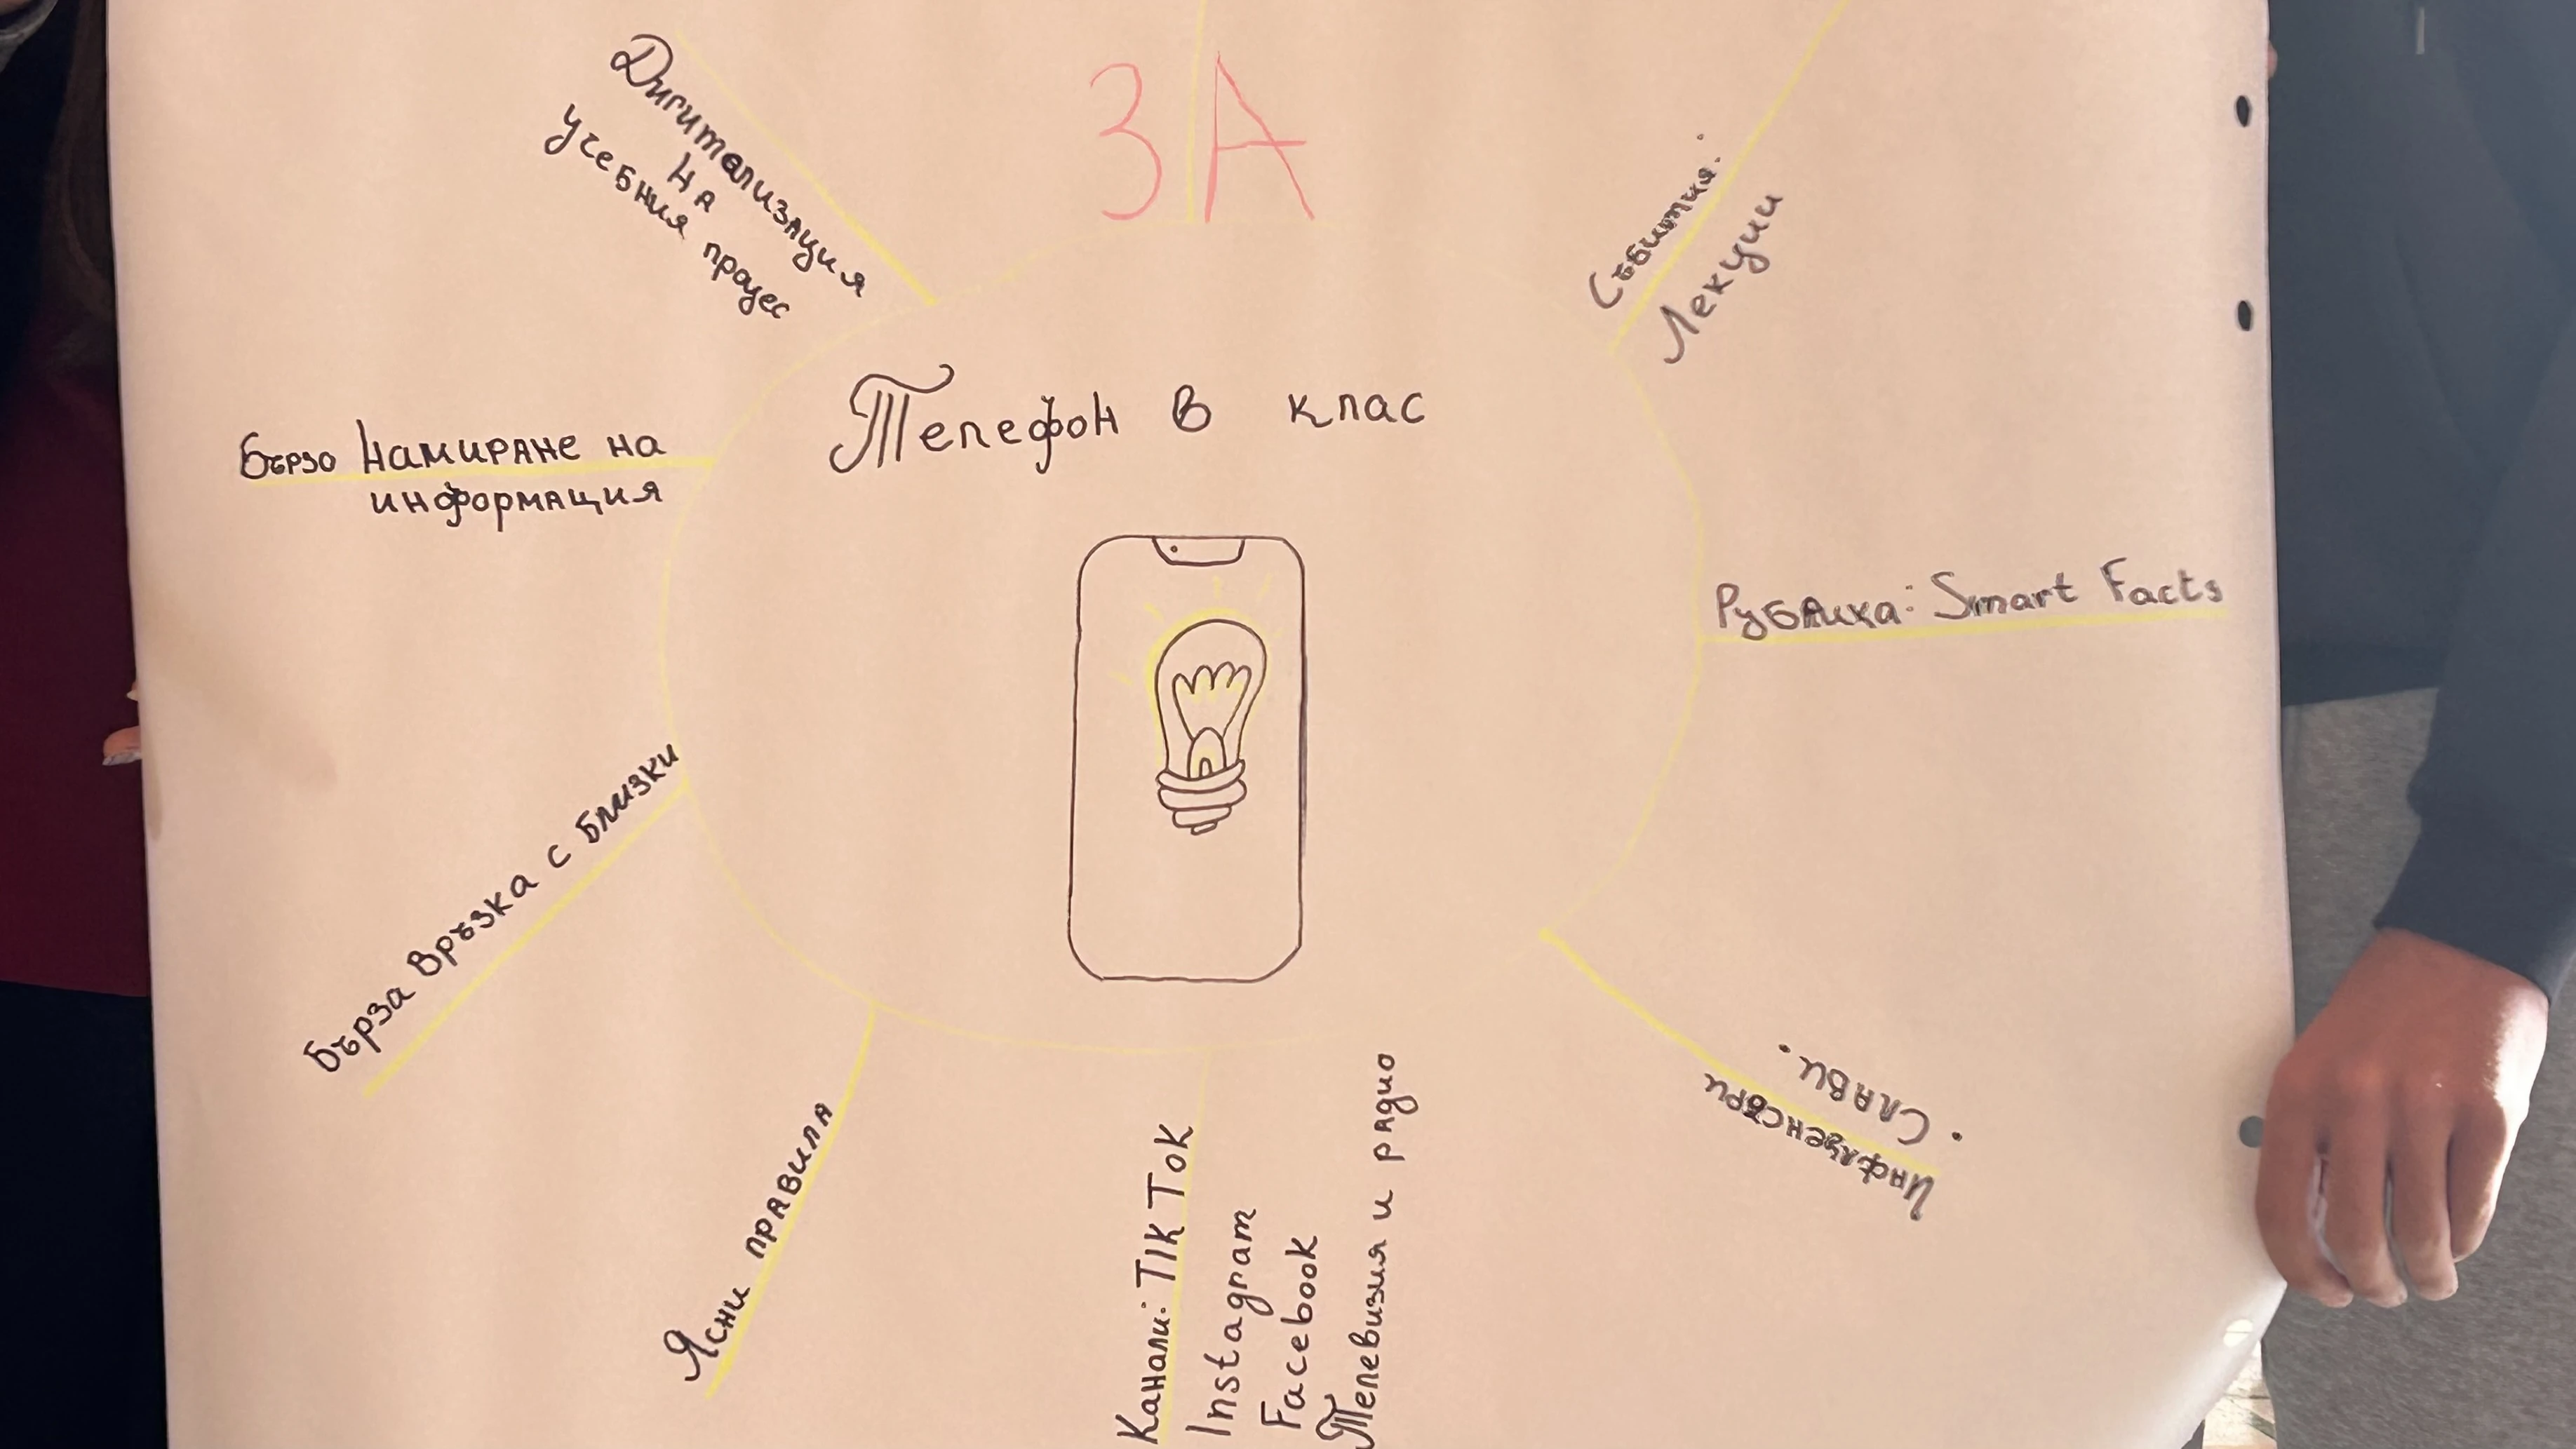 ЗА
Дигитализация
на
учебния процес
Събития:
Лекции
Телефон в клас
Бързо намиране на
информация
Рубрика: Smart Facts
Бърза връзка с близки
Ясни правила
Канали: TIK TOK
Instagram
Facebook
Телевизия и радио
Инфлуенсъри
• Слави •